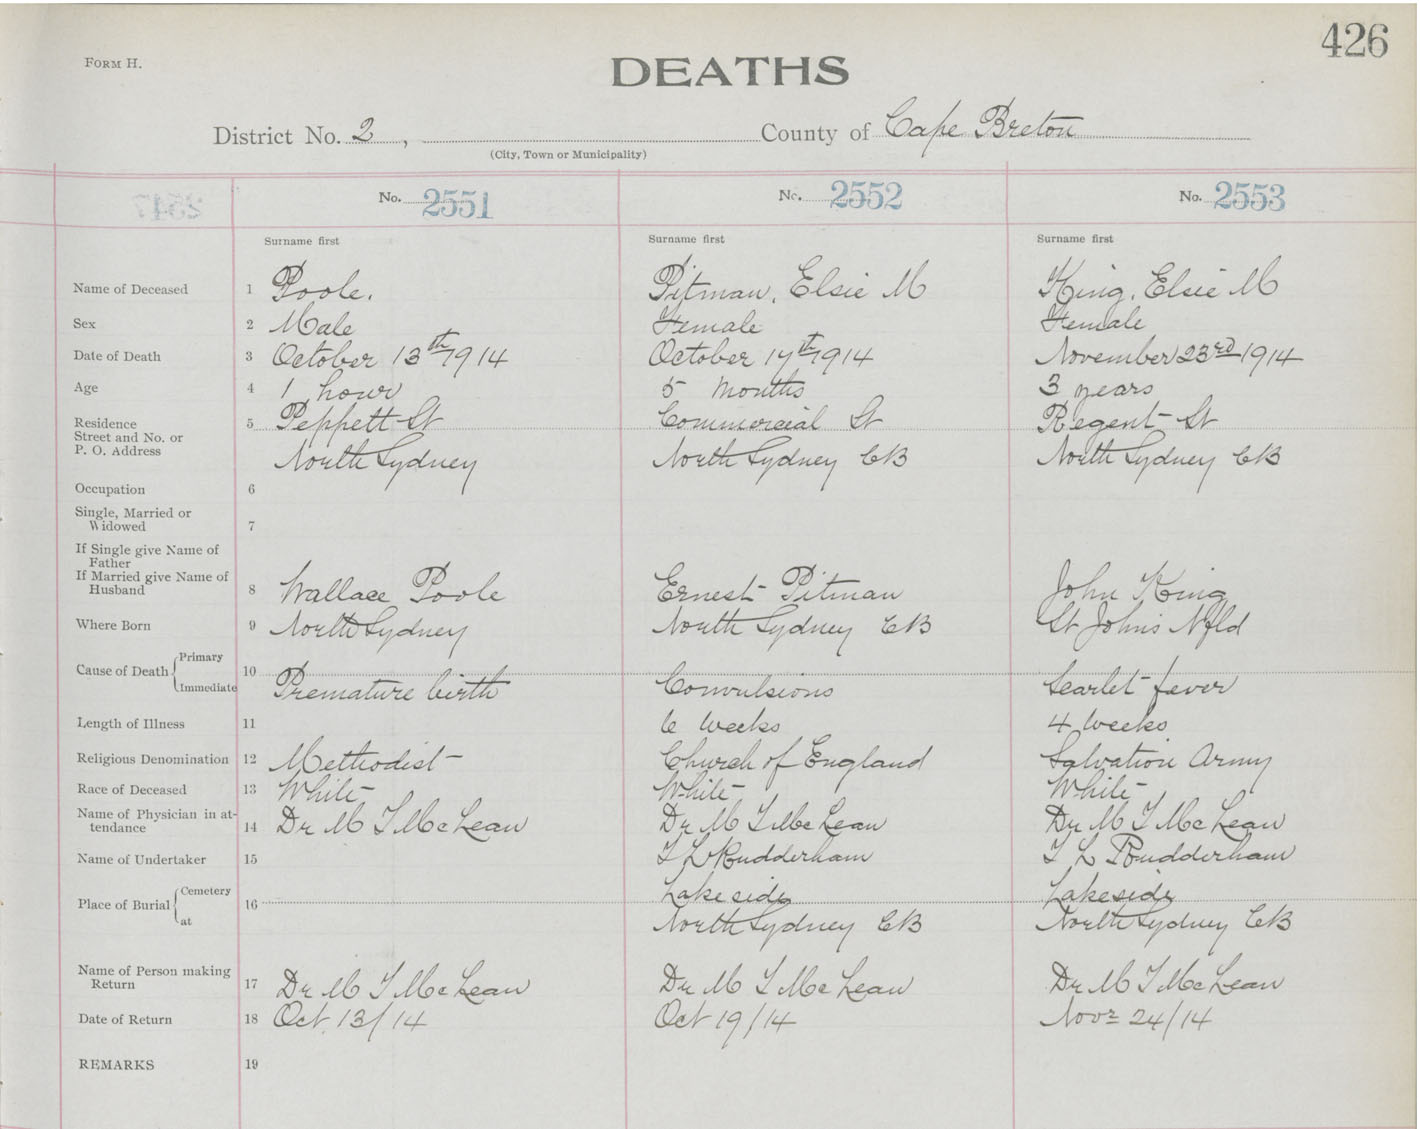 426
FORM H.
DEATHS
District No. 2, County of Cape Breton
(City, Town or Municipality)
No. 2551 No. 2552 No. 2553
Surname first Surname first Surname first
Name of Deceased 1 Poole. Pitman, Elsie M King, Elsie M
Sex 2 Male Female Female
Date of Death 3 October 13th 1914 October 17th 1914 November 23rd 1914
Age 4 1 hour 5 months 3 years
Residence
Street and No. or 5 Peppett St Commercial St Regent St
P. O. Address North Sydney North Sydney CB North Sydney CB
Occupation 6
Single, Married or
Widowed 7
If Single give Name of
Father
If Married give Name of
Husband 8 Wallace Poole Ernest Pitman John King
Where Born 9 North Sydney North Sydney CB St Johns Nfld
Cause of Death Primary 10
Immediate Premature birth Convulsions Scarlet fever
Length of Illness 11 6 weeks 4 weeks
Religious Denomination 12 Methodist Church of England Salvation Army
Race of Deceased 13 White White White
Name of Physician in at-
tendance 14 Dr M T McLean Dr M T McLean Dr M T McLean
Name of Undertaker 15 T L Rudderham T L Rudderham
Place of Burial Cemetery 16 Lakeside Lakeside
at North Sydney CB North Sydney CB
Name of Person making
Return 17 Dr M T McLean Dr M T McLean Dr M T McLean
Date of Return 18 Oct 13/14 Oct 19/14 Novr 24/14
REMARKS 19